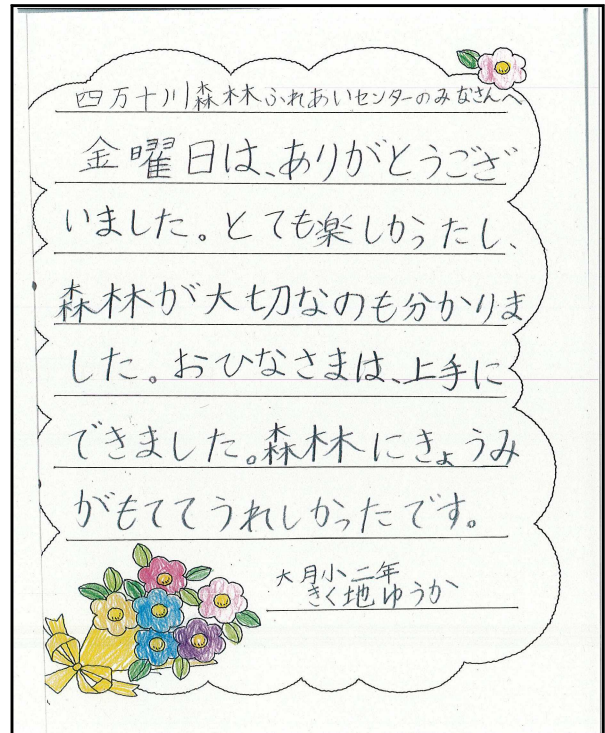 四万十川森林ふれあいセンターのみなさんへ
金曜日は、ありがとうござ
いました。とても楽しかったし、
森林が大切なのも分かりま
した。おひなさまは、上手に
できました。森林にきょうみ
がもててうれしかったです。
大月小二年
きく地ゆうか